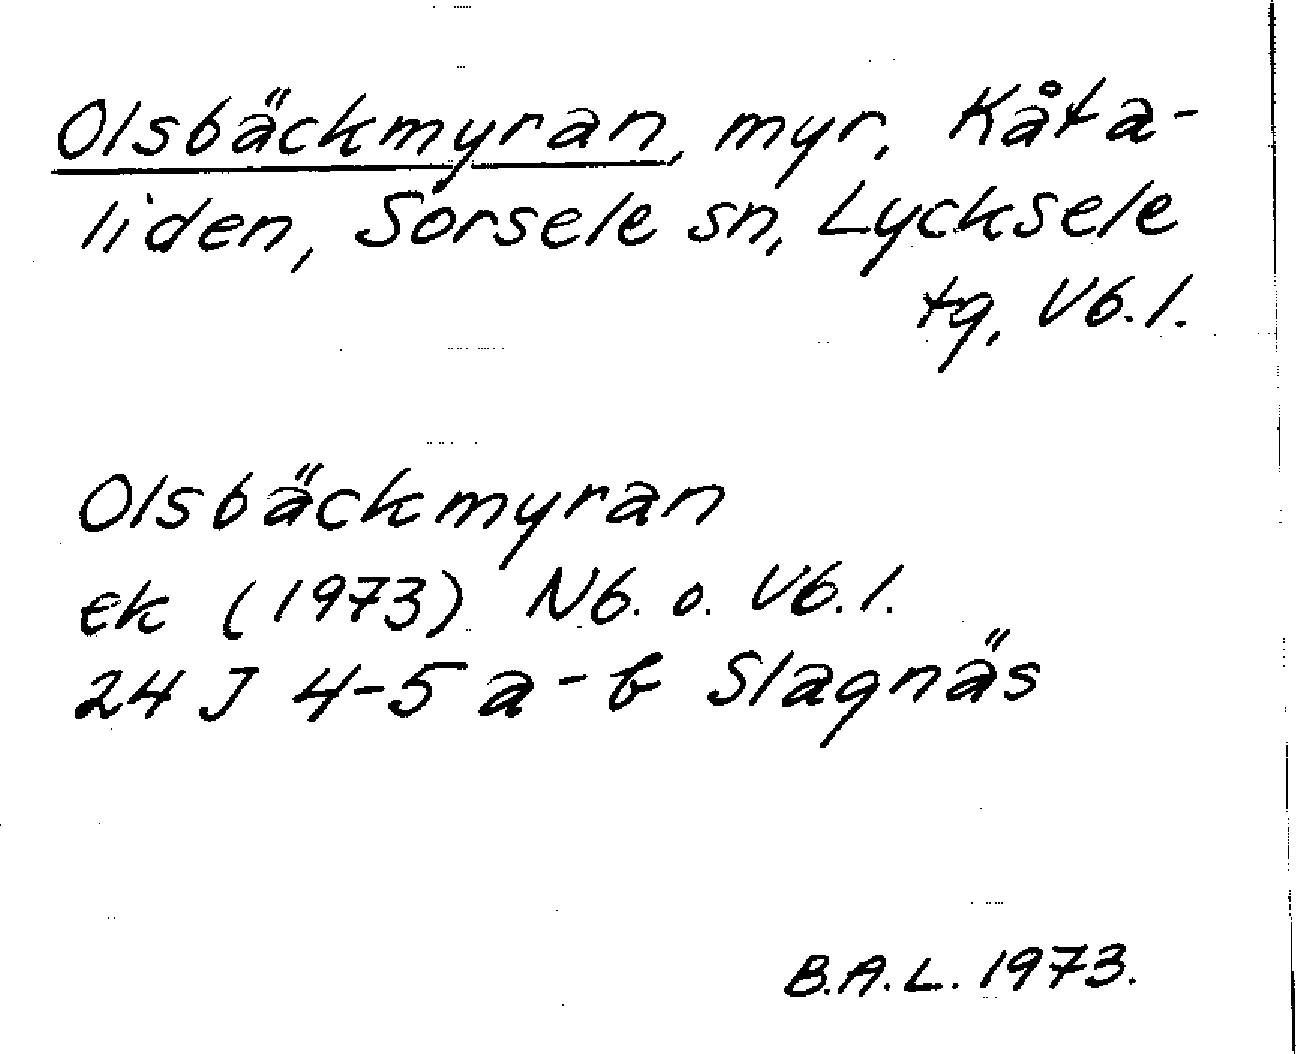 Olsbäckmyran, myr, Kåta-
liden, Sorsele sn, Lycksele
tg, Vb.l.
Olsbäckmyran
ek (1973) Nb. o. Vb.l.
24 J 4-5 a-b Slagnäs
B.A.L. 1973.